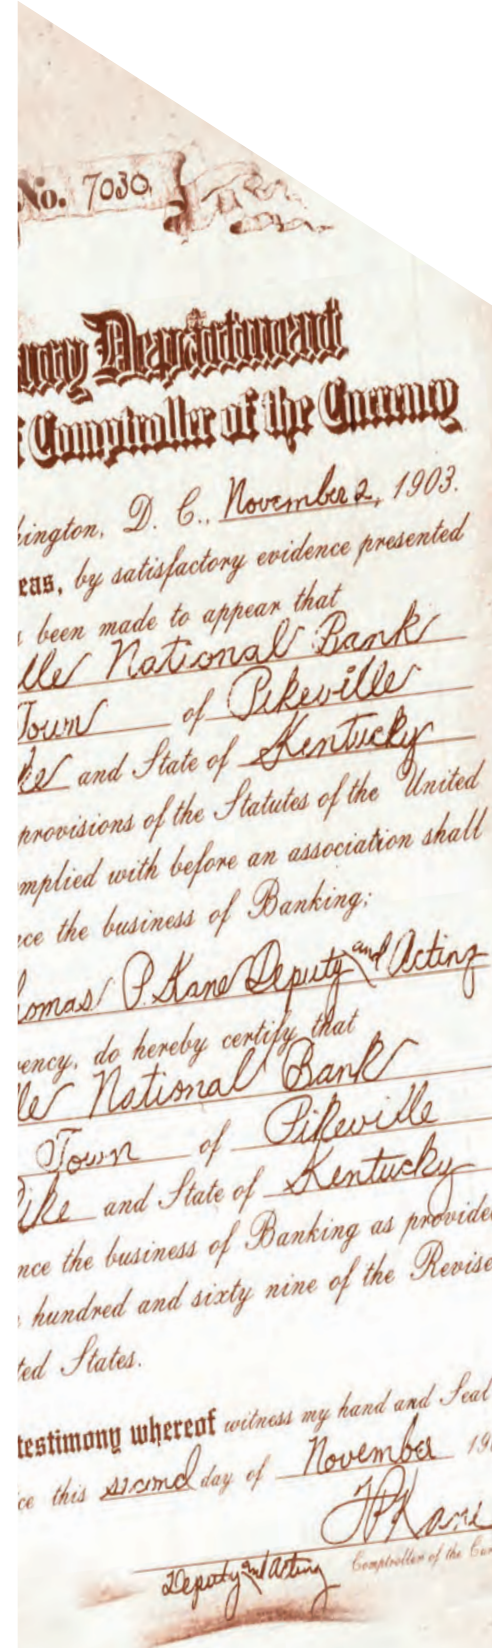 No. 7030
ury Department
f Comptroller of the Currency
hington, D. C., November 2, 1903.
eas, by satisfactory evidence presented
s been made to appear that
lle National Bank
Town of Pikeville
ke and State of Kentucky
provisions of the Statutes of the United
mplied with before an association shall
ce the business of Banking;
omas P. Kane Deputy and Acting
ency, do hereby certify that
le National Bank
Town of Pikeville
Pike and State of Kentucky
nce the business of Banking as provide
hundred and sixty nine of the Revise
ted States.
testimony whereof witness my hand and Seal
ce this second day of November 190
TP Kane
Deputy and Acting Comptroller of the Cur